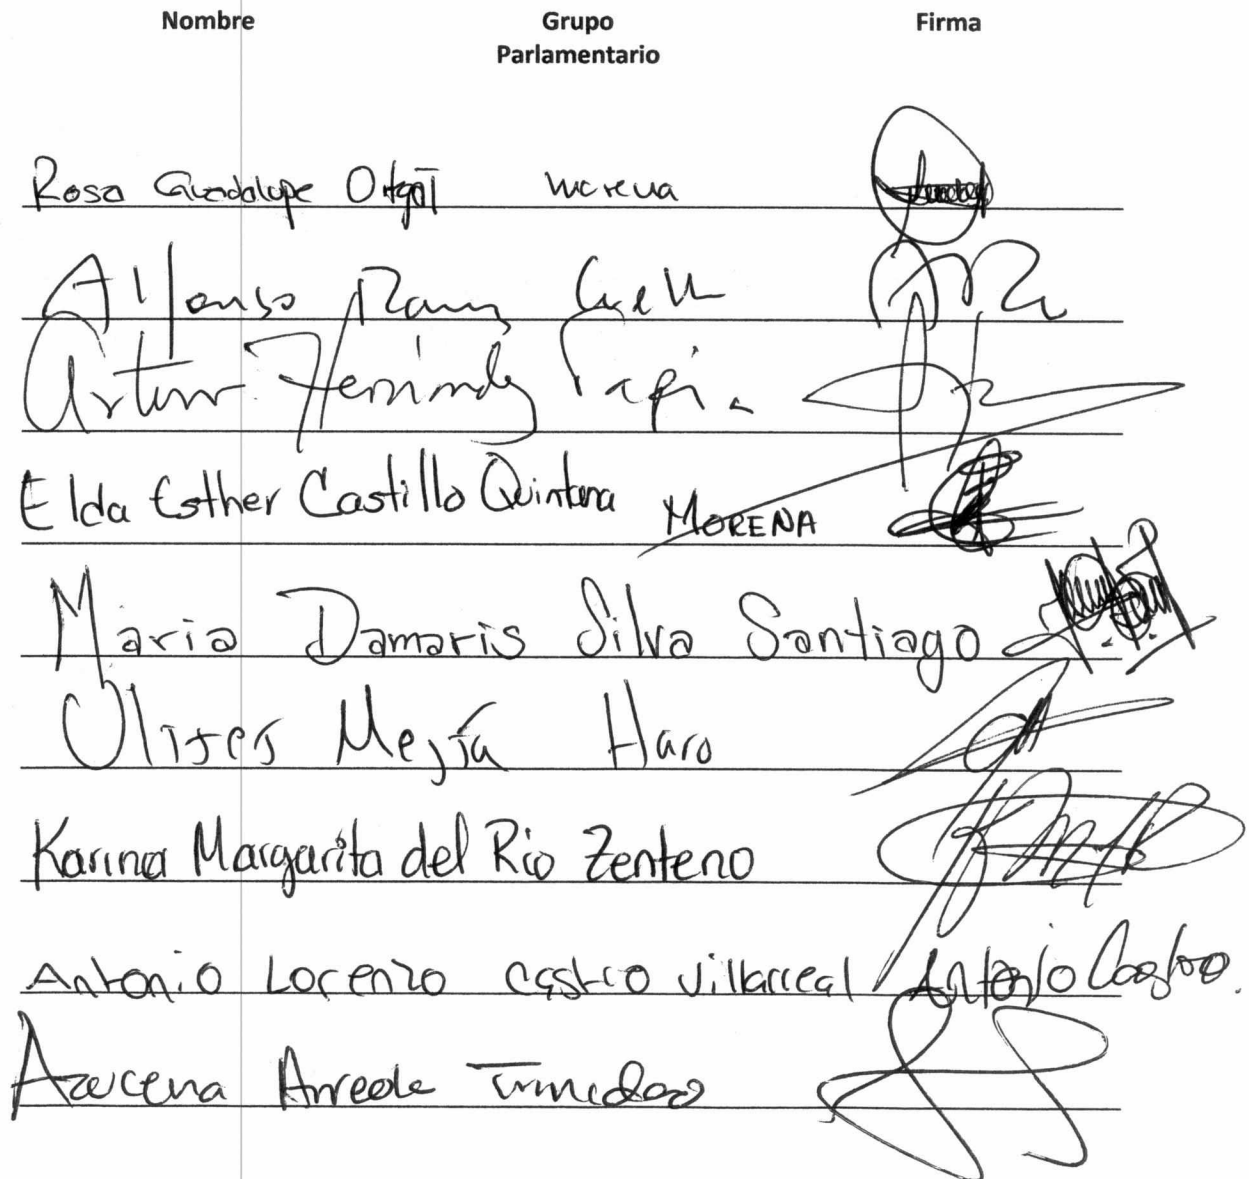 Nombre Grupo Parlamentario Firma
Rosa Guadalupe morena
Alfonso
Artur Hernández Tapia.
Elda Esther Castillo Quintana MORENA
Maria Damaris Silva Santiago
Ulises Mejía Haro
Karina Margarita del Rio Zenteno
Antonio Lorenzo Castro Villarreal Antonio Castro.
Azucena Arreola